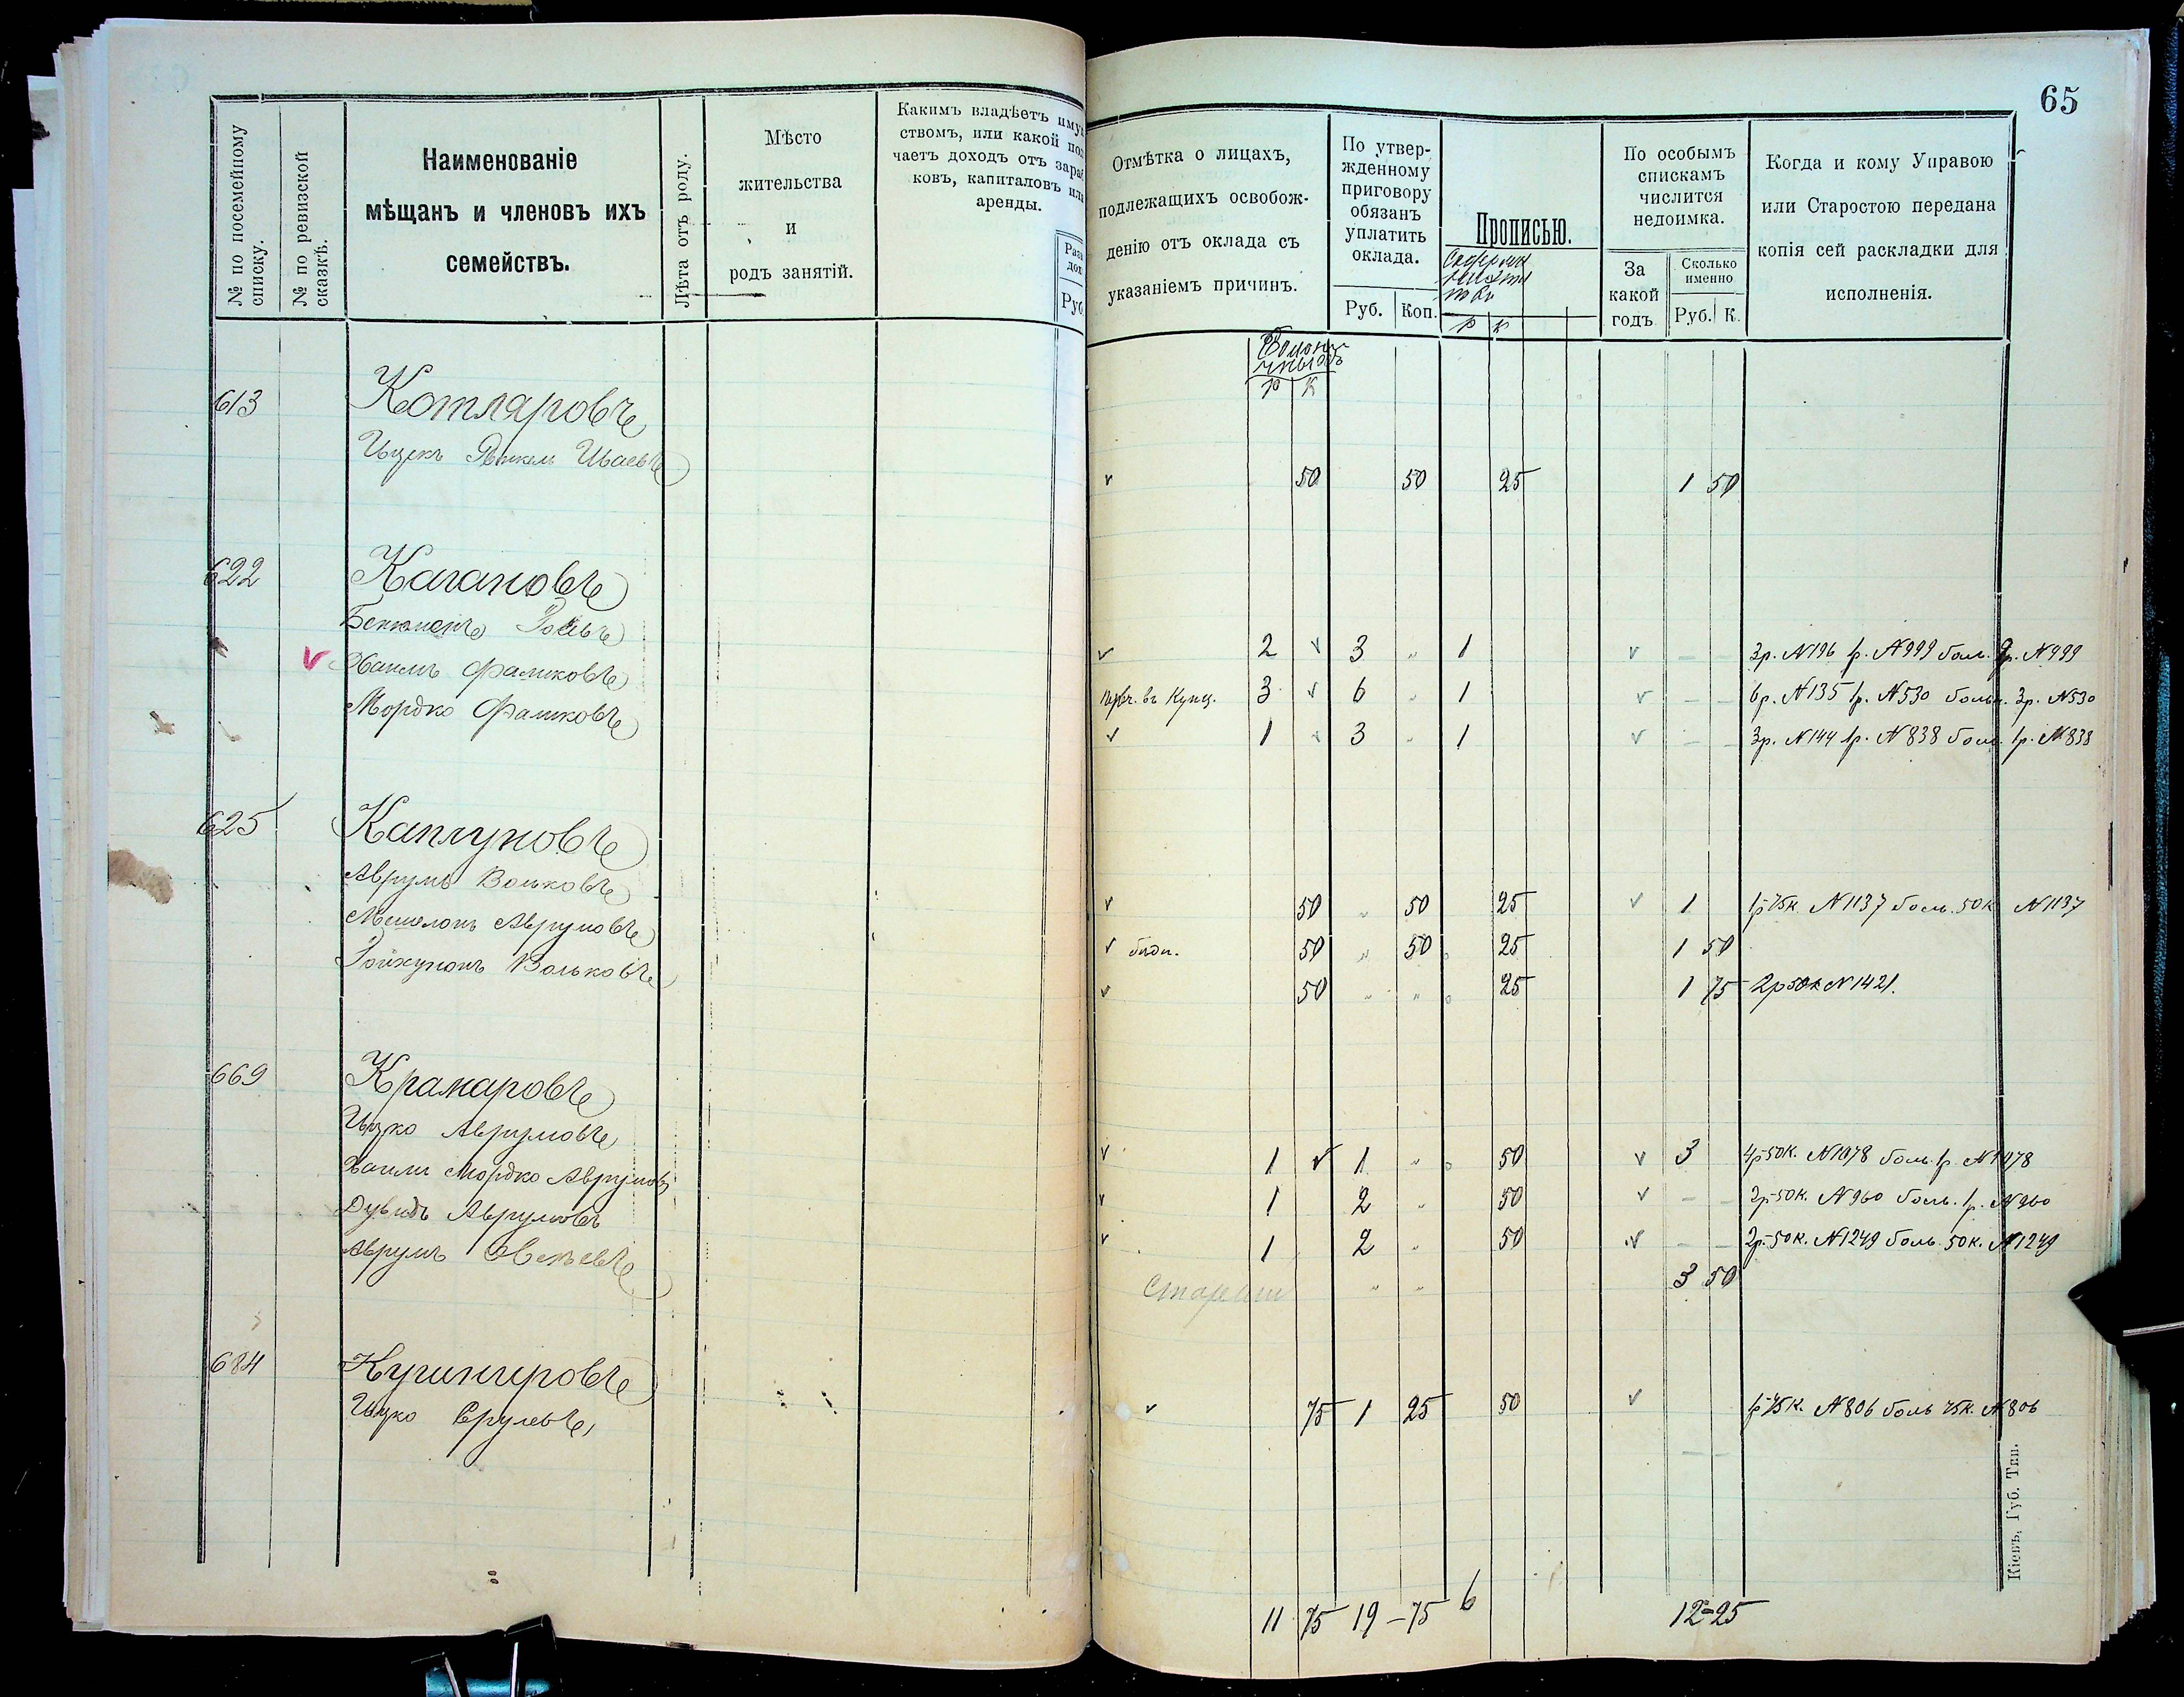 65
№ по посемейному списку.
№ по ревизской сказкѣ.
Наименованіе
мѣщанъ и членовъ ихъ
семействъ.
Лѣта отъ роду.
Мѣсто
жительства
и
родъ занятій.
Какимъ владѣетъ иму
ствомъ, или какой пол
чаетъ доходъ отъ зараб
ковъ, капиталовъ или
аренды.
Руб
Отмѣтка о лицахъ,
подлежащихъ освобож-
денію отъ оклада съ
указаніемъ причинъ.
По утвер-
жденному
приговору
обязанъ
уплатить
оклада.
Руб. Коп.
Прописью.
р к
По особымъ
спискамъ
числится
недоимка.
За
какой
годъ
Сколько
именно
Руб. К.
Когда и кому Управою
или Старостою передана
копія сей раскладки для
исполненія.
р к
613 Котляровъ
Ицекъ Янкель Иваевъ
50 50 25 1 50
622 Кагановъ
2 3 " 1 3р. №196 1р. №999 боль. 2р. №999
Хаимъ Фальковъ
3 6 " 1 6р. №135 1р. №530 больн. 3р. №530
Мордко Фальковъ
1 3 " 1 3р. №144 1р. №838 боль. 1р. №838
625 Каплуновъ
Аврумъ Вольковъ
50 " 50 25 1 1р 75к. №1137 боль. 50к №1137
Аврумовъ
50 " 50 25 1 50
Вольковъ
50 " " 25 1 75 2р 50к №1421.
669 Крамаровъ
Ицко Аврумовъ
1 1 " 50 3 4р 50к. №1078 боль. 1р. №1078
Хаимъ Мордко Аврумовъ
1 2 " 50 2р-50к. №960 боль. 1р. №960
Дувидъ Аврумовъ
1 2 " 50 2р-50к. №1249 боль. 50к. №1249
Аврумъ
" " 3 50
684 Кушнировъ
Ицко Срулевъ
75 1 25 50 1р 75к. №806 боль 75к. №806
11 75 19-75 6 12-25
Кіевъ, Губ. Тип.